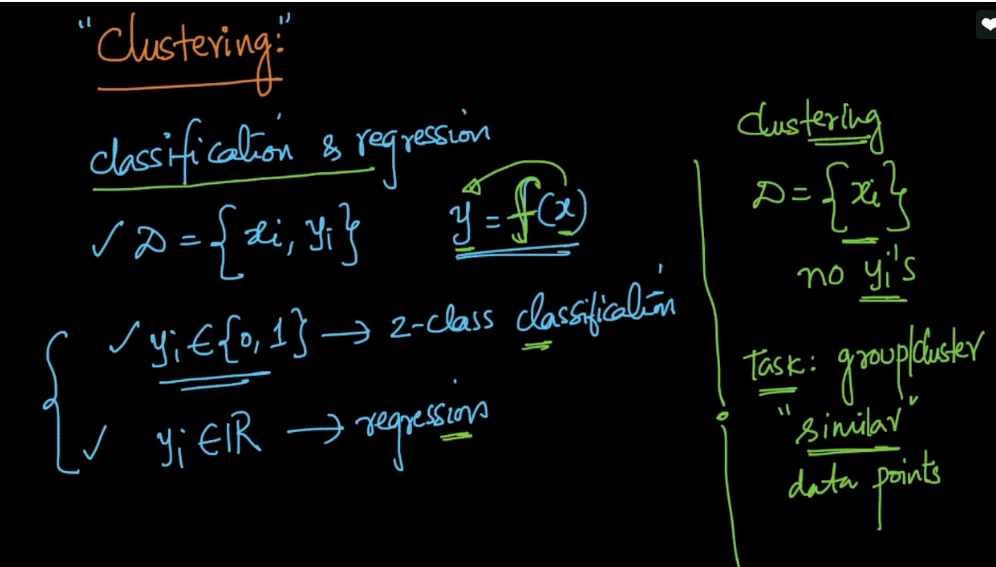 "Clustering:"
classification & regression
✓ D = {xi, yi}
y = f(x)
✓ yi ∈ {0, 1} → 2-class classification
✓ yi ∈ ℝ → regression
Clustering
D = {xi}
no yi's
Task: group/cluster
"similar"
data points